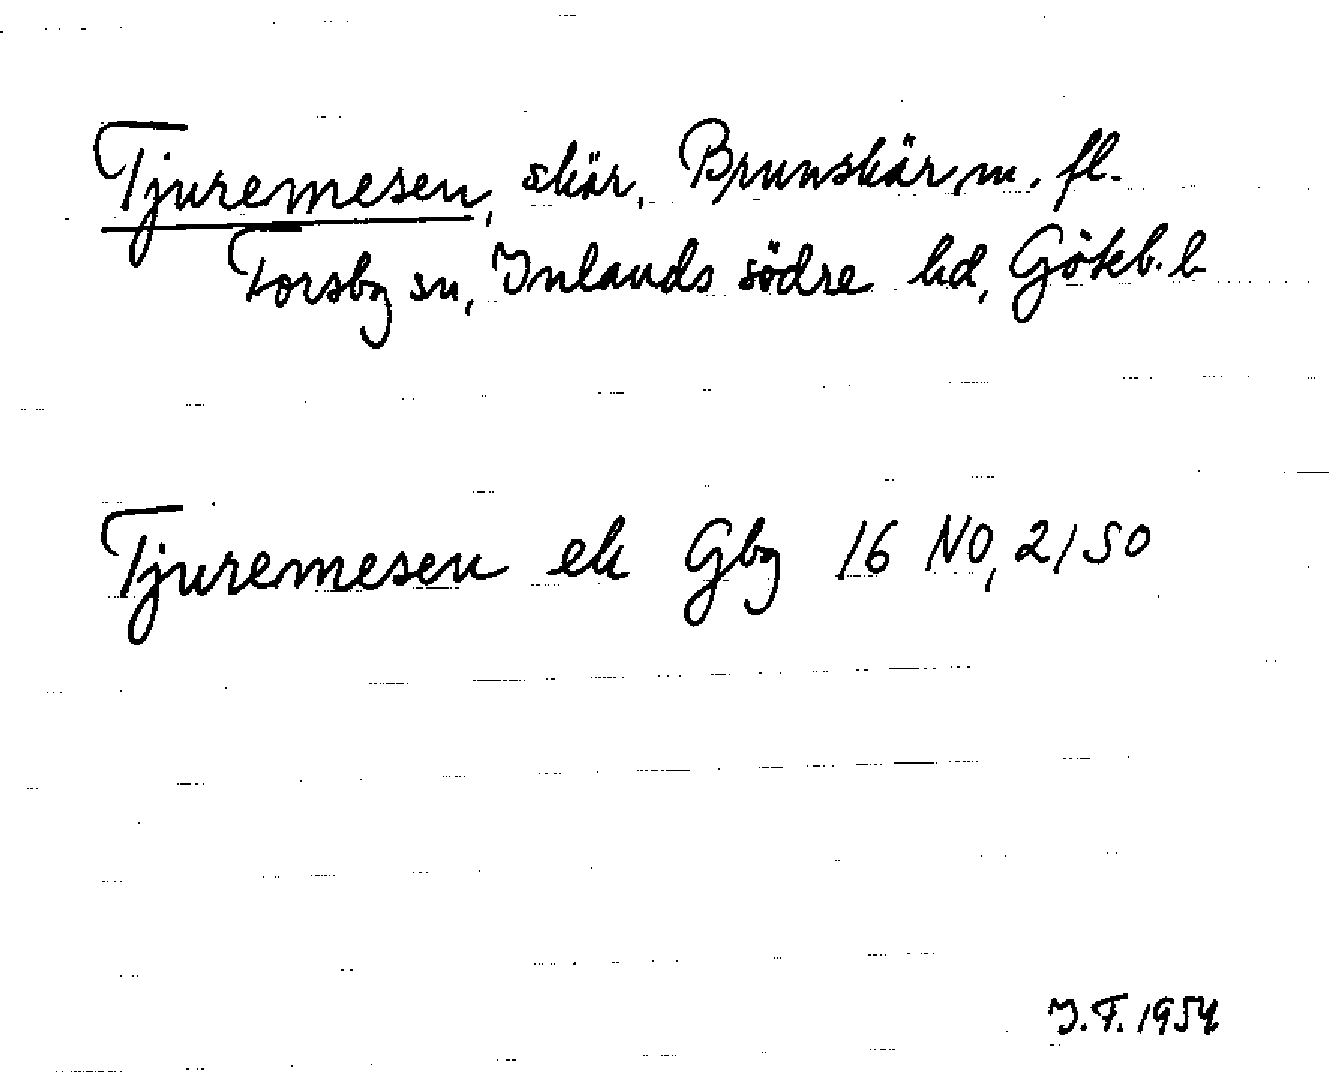 Tjuremesen, skär, Brunskär m. fl.
Torsby sn, Inlands södre hd, Gökb. l.
Tjuremesen ek Gbg 16 NO, 2150
J.F. 1954